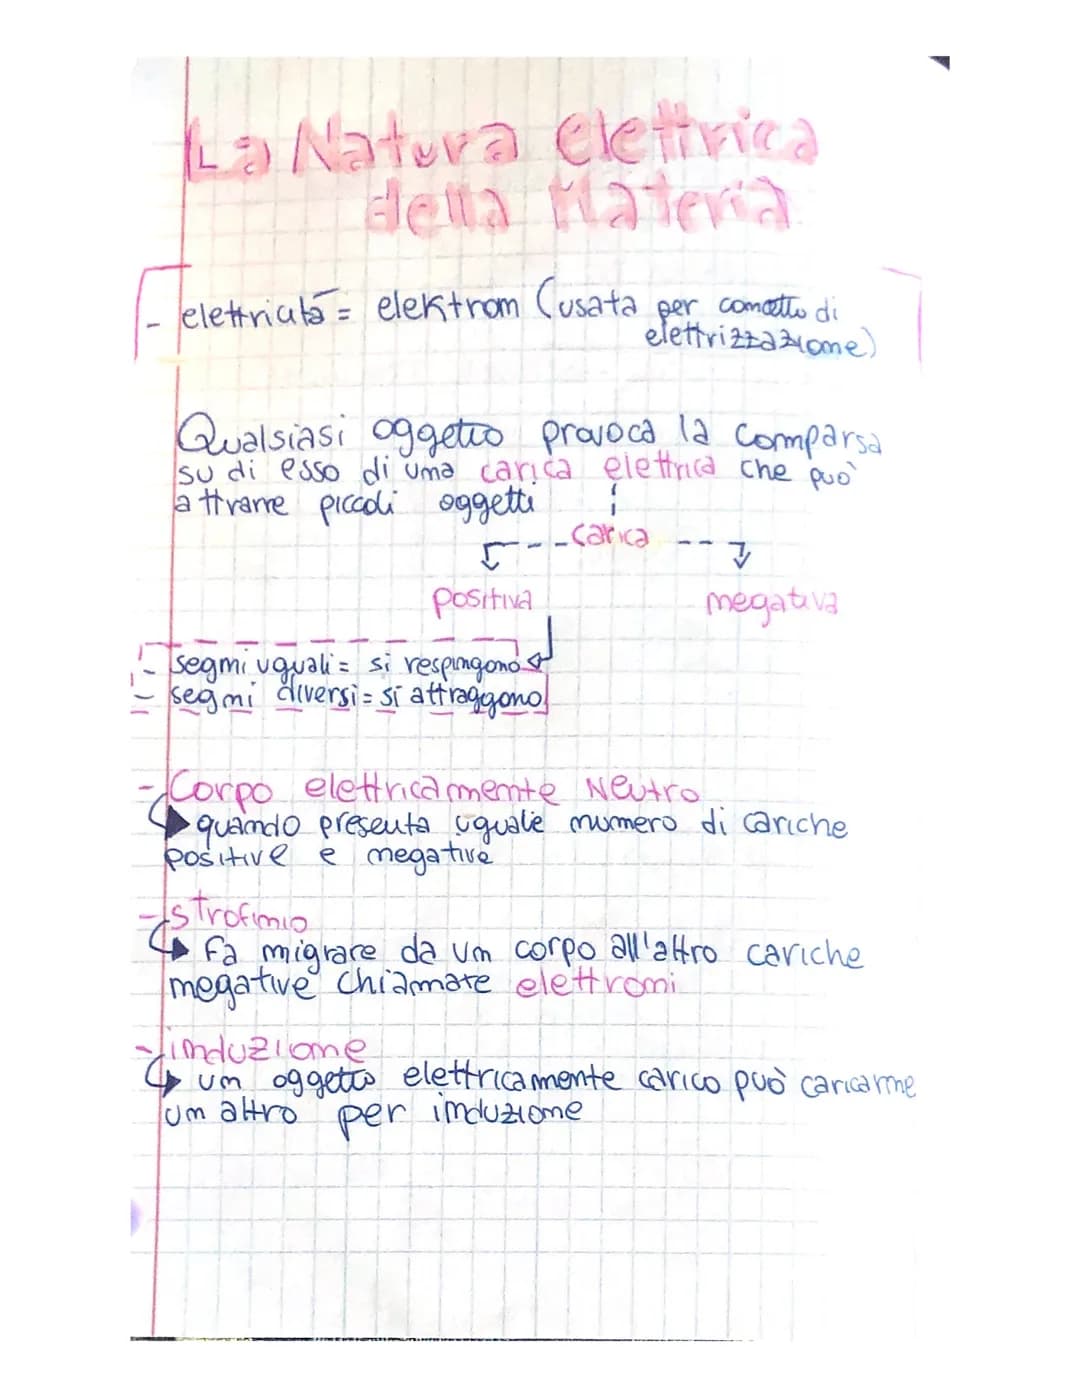 La Natura elettrica
della Materia
- elettricità = elektron (usata per concetto di
elettrizzazione)
Qualsiasi oggetto provoca la comparsa
su di esso di una carica elettrica che può
attrarre piccoli oggetti
carica
positiva negativa
- segni uguali = si respingono
- segni diversi = si attraggono
- Corpo elettricamente Neutro
quando presenta uguale numero di cariche
positive e negative
- strofinio
fa migrare da un corpo all'altro cariche
negative chiamate elettroni
- induzione
un oggetto elettricamente carico può caricarne
un altro per induzione